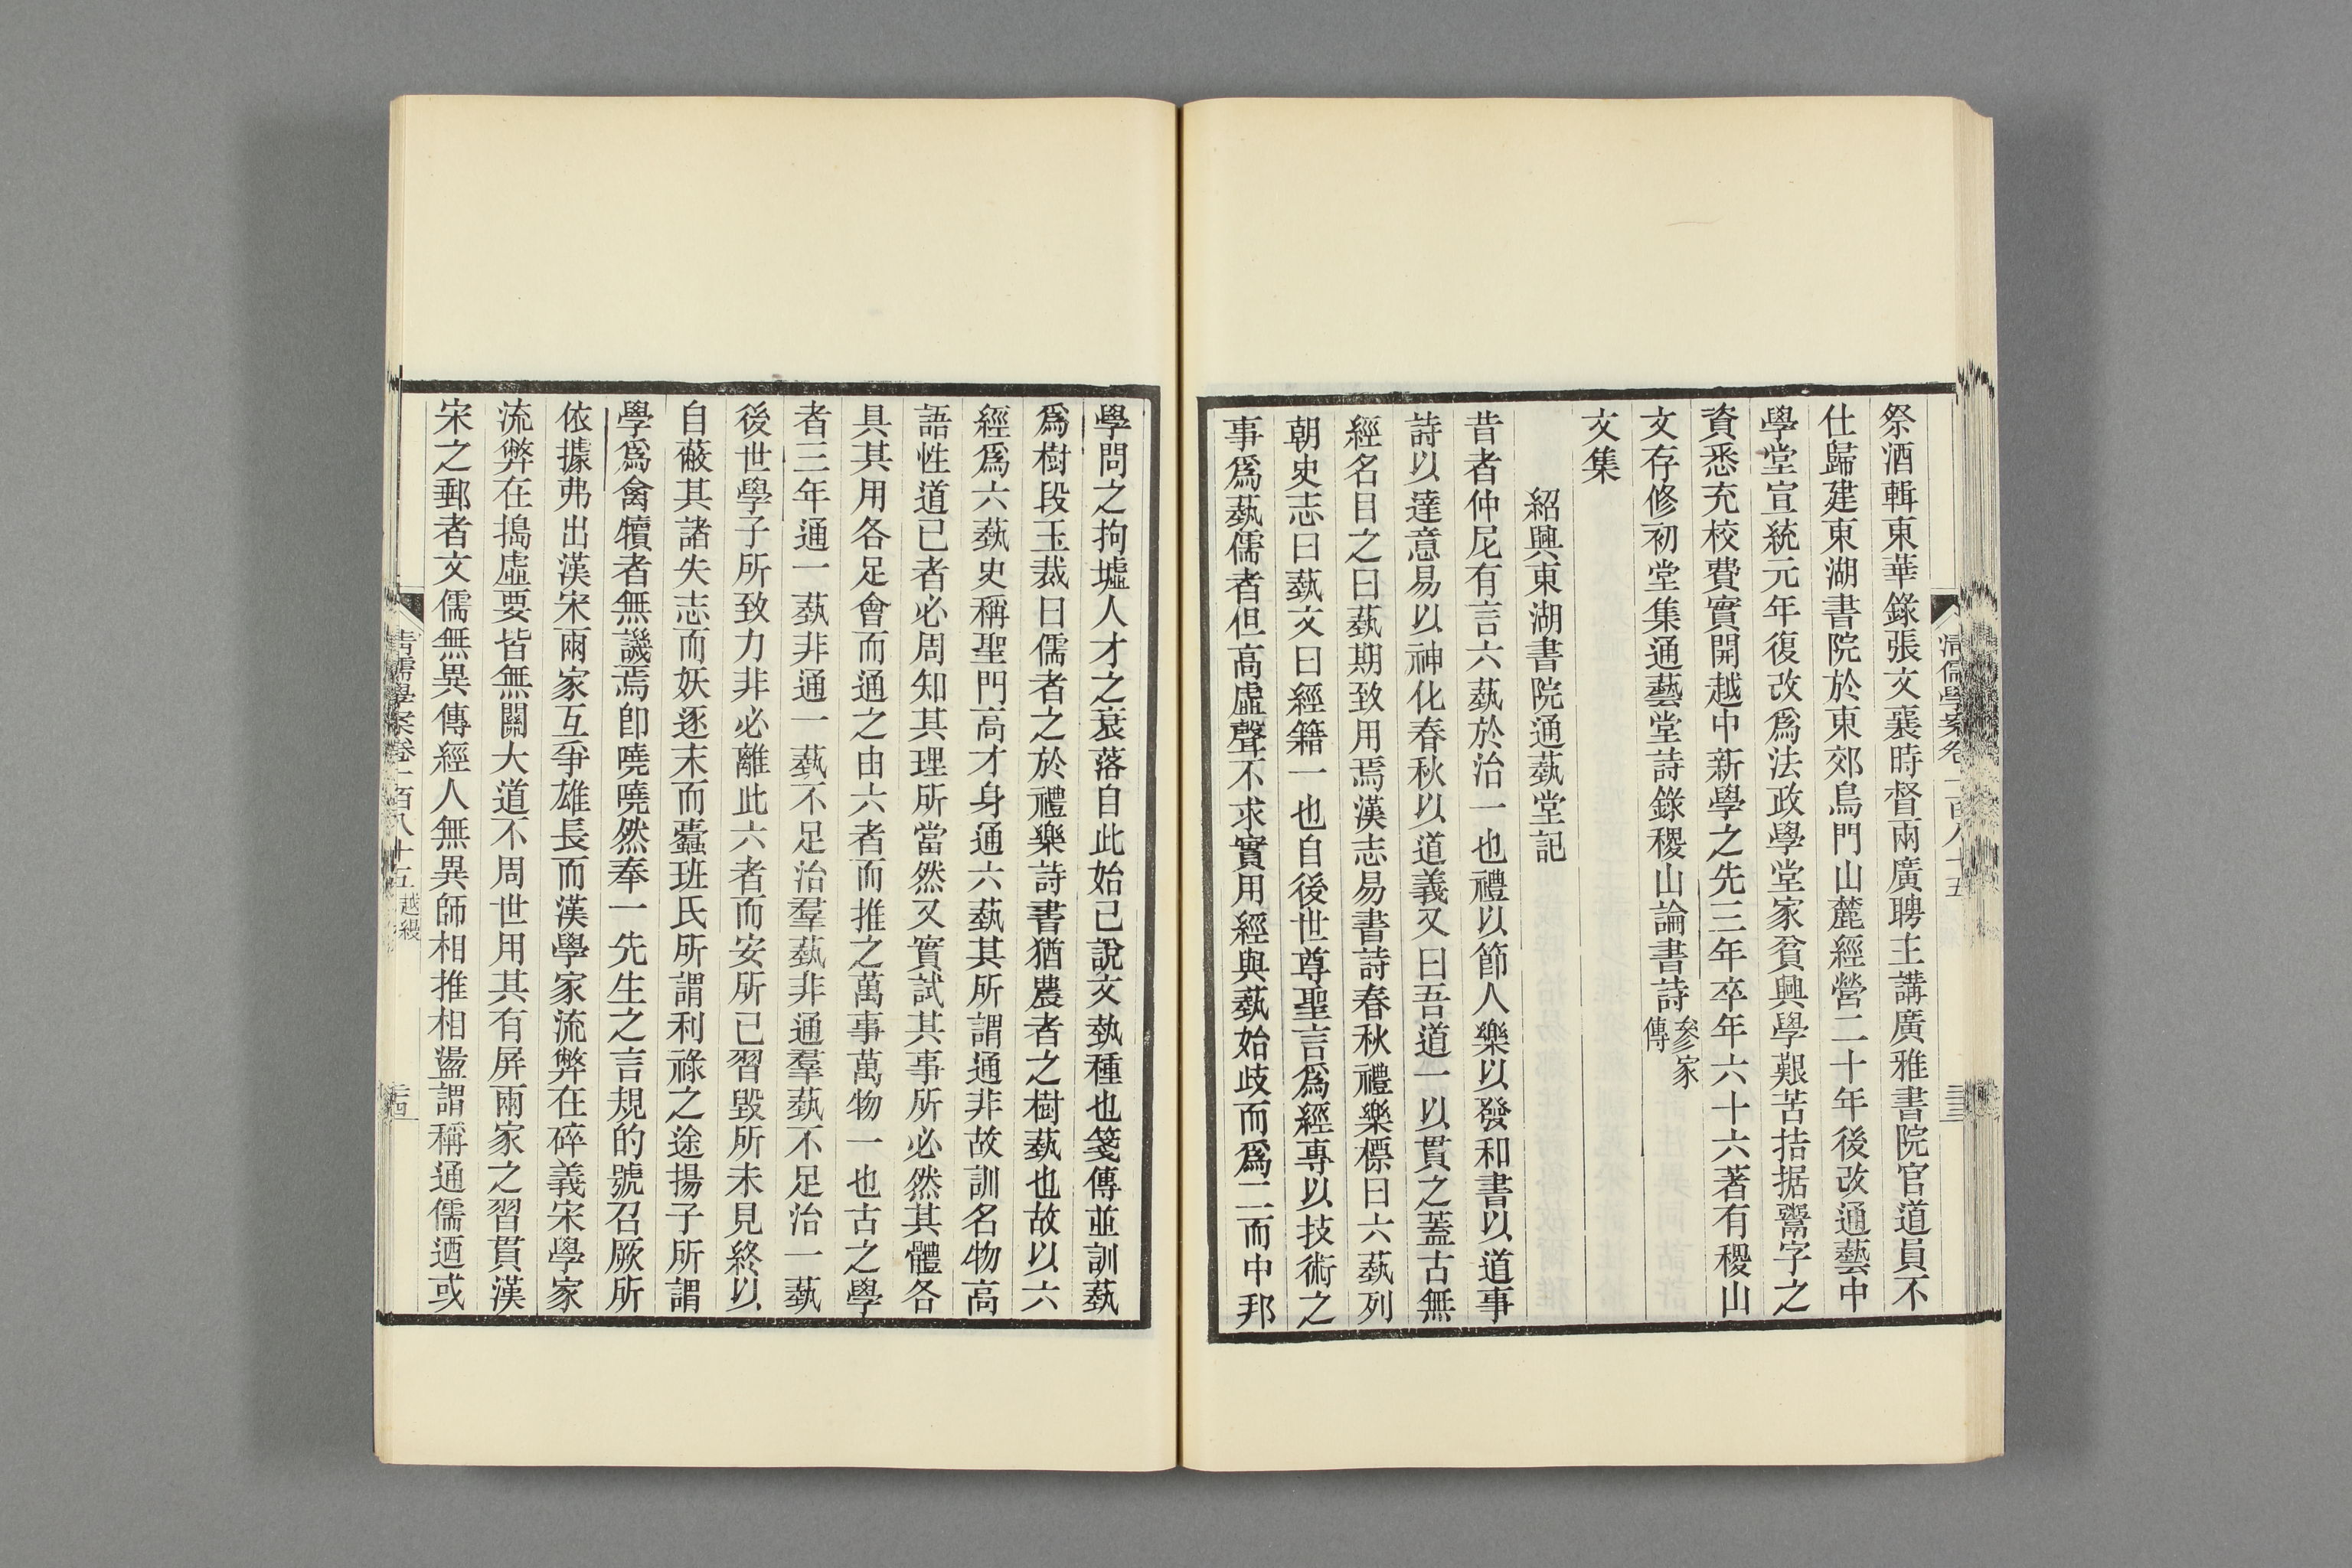 清儒學案卷一百八十五
三三
祭酒輯東華錄張文襄時督兩廣聘主講廣雅書院官道員不
仕歸建東湖書院於東郊烏門山麓經營二十年後改通藝中
學堂宣統元年復改爲法政學堂家貧興學艱苦拮据鬻字之
資悉充校費實開越中新學之先三年卒年六十六著有稷山
文存修初堂集通藝堂詩錄稷山論書詩參家傳
文集
紹興東湖書院通蓺堂記
昔者仲尼有言六蓺於治一也禮以節人樂以發和書以道事
詩以達意易以神化春秋以道義又曰吾道一以貫之蓋古無
經名目之曰蓺期致用焉漢志易書詩春秋禮樂標曰六蓺列
朝史志曰蓺文曰經籍一也自後世尊聖言爲經專以技術之
事爲蓺儒者但高虛聲不求實用經與蓺始歧而爲二而中邦
學問之拘墟人才之衰落自此始已說文埶種也箋傳並訓蓺
爲樹段玉裁曰儒者之於禮樂詩書猶農者之樹蓺也故以六
經爲六蓺史稱聖門高才身通六蓺其所謂通非故訓名物高
語性道已者必周知其理所當然又實試其事所必然其體各
具其用各足會而通之由六者而推之萬事萬物一也古之學
者三年通一蓺非通一蓺不足治羣蓺非通羣蓺不足治一蓺
後世學子所致力非必離此六者而安所已習毀所未見終以
自蔽其諸失志而妖逐末而蠹班氏所謂利祿之途揚子所謂
學爲禽犢者無譏焉卽曉曉然奉一先生之言規的號召厥所
依據弗出漢宋兩家互爭雄長而漢學家流弊在碎義宋學家
流弊在搗虛要皆無關大道不周世用其有屏兩家之習貫漢
宋之郵者文儒無異傳經人無異師相推相盪謂稱通儒迺或
清儒學案卷一百八十五 越縵
三四